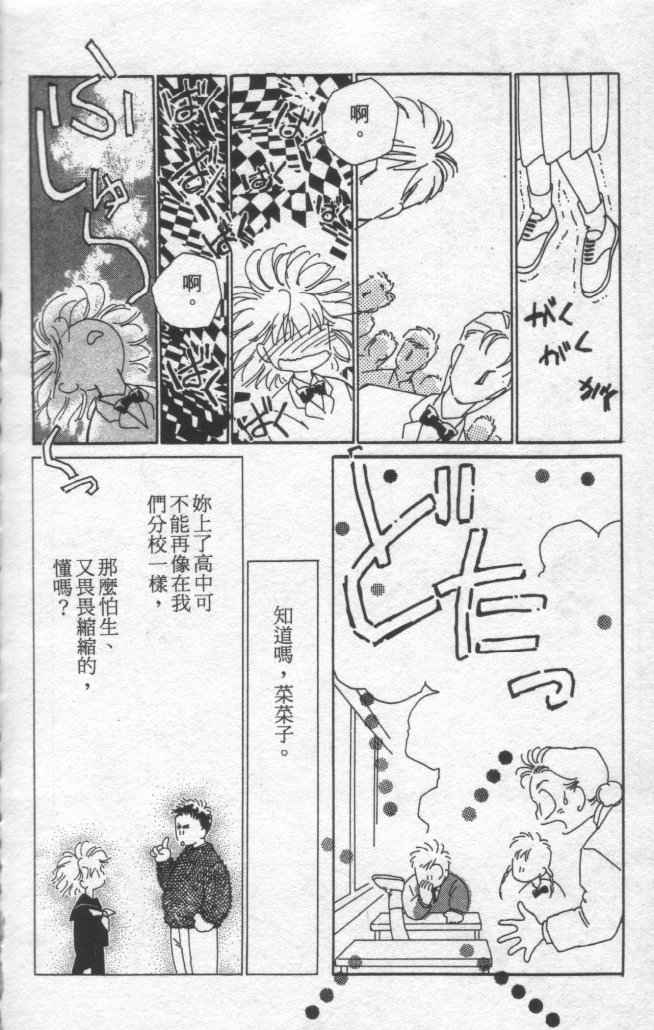 がく
がく
がく
啊。
ばく
ばく
ばく
ばく
ばく
ばく
ばく
ばく
ばく
啊。
ぷしゅうーっ
どたっ
知道嗎，菜菜子。
妳上了高中可
不能再像在我
們分校一樣，
那麼怕生、
又畏畏縮縮的，
懂嗎？